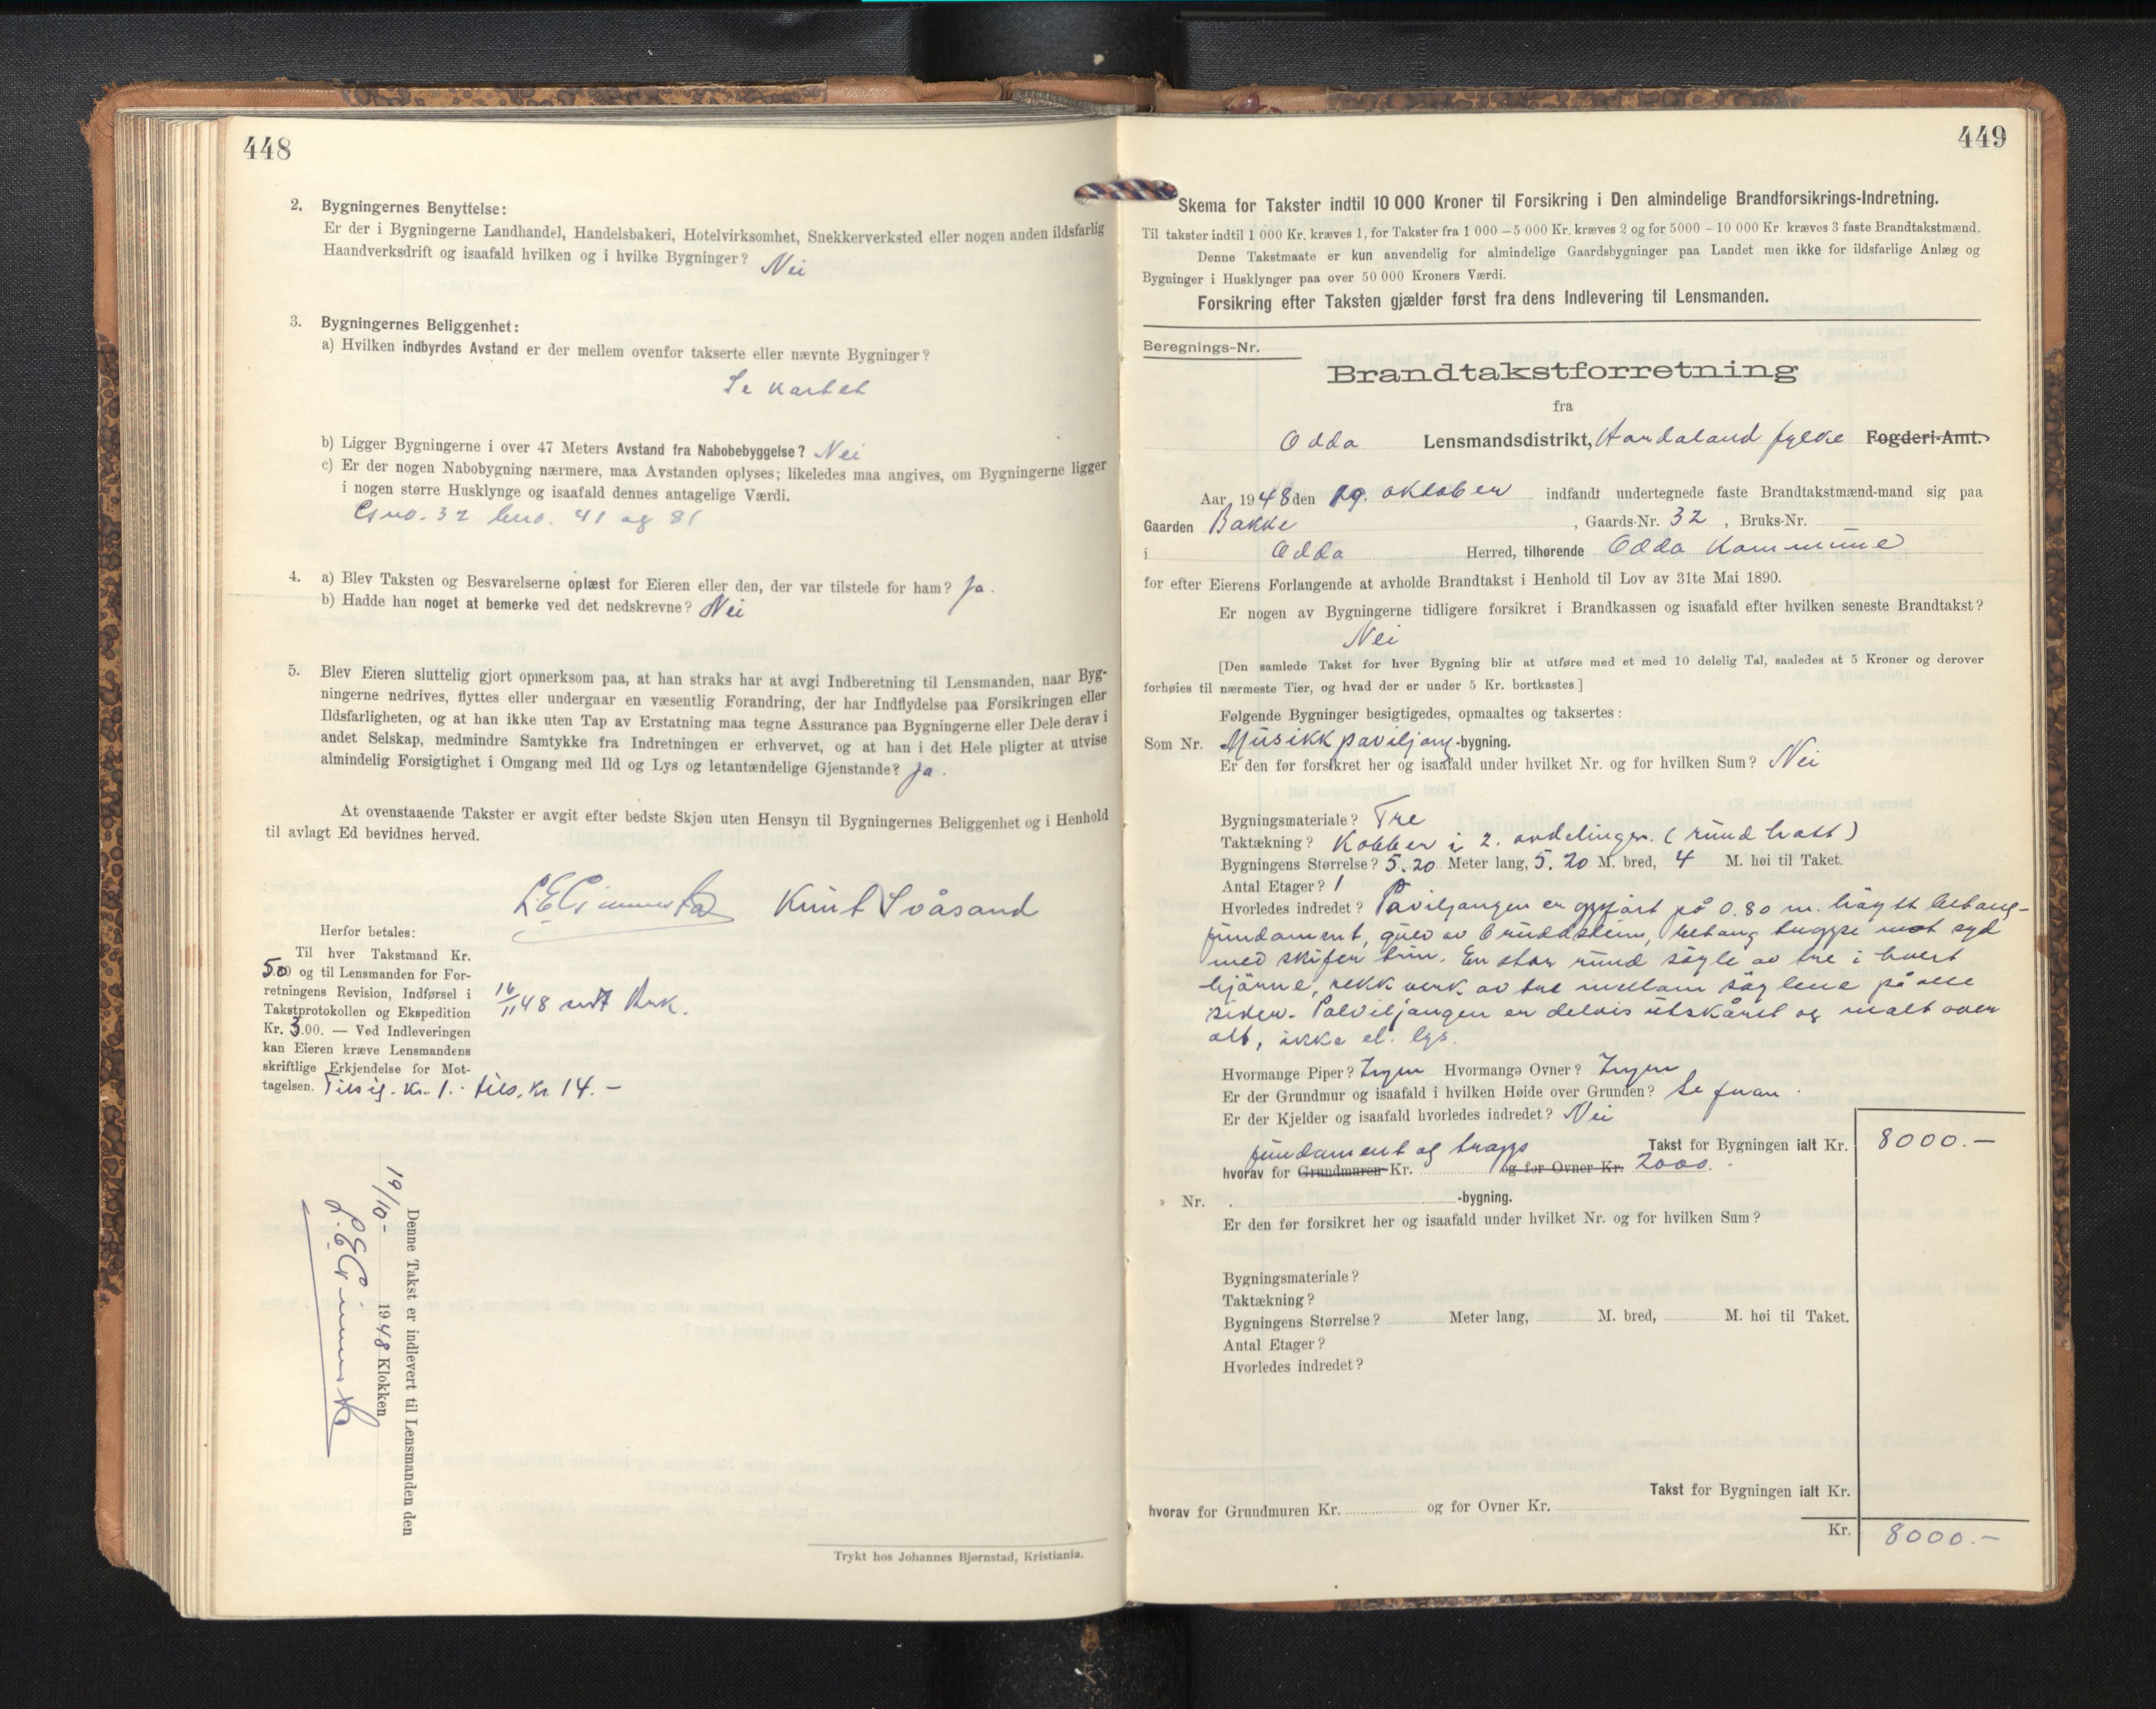 448
2. Bygningernes Benyttelse:
Er der i Bygningerne Landhandel, Handelsbakeri, Hotelvirksomhet, Snekkerverksted eller nogen anden ildsfarlig
Haandverksdrift og isaafald hvilken og i hvilke Bygninger? Nei
3. Bygningernes Beliggenhet:
a) Hvilken indbyrdes Avstand er der mellem ovenfor takserte eller nævnte Bygninger?
Se kartet
b) Ligger Bygningerne i over 47 Meters Avstand fra Nabobebyggelse? Nei
c) Er der nogen Nabobygning nærmere, maa Avstanden oplyses; likeledes maa angives, om Bygningerne ligger
i nogen større Husklynge og isaafald dennes antagelige Værdi.
Gno. 32 bno. 41 og 81
4. a) Blev Taksten og Besvarelserne oplæst for Eieren eller den, der var tilstede for ham? Ja.
b) Hadde han noget at bemerke ved det nedskrevne? Nei
5. Blev Eieren sluttelig gjort opmerksom paa, at han straks har at avgi Indberetning til Lensmanden, naar Byg-
ningerne nedrives, flyttes eller undergaar en væsentlig Forandring, der har Indflydelse paa Forsikringen eller
Ildsfarligheten, og at han ikke uten Tap av Erstatning maa tegne Assurance paa Bygningerne eller Dele derav i
andet Selskap, medmindre Samtykke fra Indretningen er erhvervet, og at han i det Hele pligter at utvise
almindelig Forsigtighet i Omgang med Ild og Lys og letantændelige Gjenstande? Ja.
At ovenstaaende Takster er avgit efter bedste Skjøn uten Hensyn til Bygningernes Beliggenhet og i Henhold
til avlagt Ed bevidnes herved.
Knut Svåsand
Herfor betales:
Til hver Takstmand Kr.
5.00 og til Lensmanden for For-
retningens Revision, Indførsel i
Takstprotokollen og Ekspedition
Kr. 3.00. — Ved Indleveringen
kan Eieren kræve Lensmandens
skriftlige Erkjendelse for Mot-
tagelsen. Tilsig. Kr. 1.- tils. kr. 14.-
16/11 48 sendt Brk.
Denne Takst er indlevert til Lensmanden den
19/10- 1948 Klokken
Trykt hos Johannes Bjørnstad, Kristiania.
449
Skema for Takster indtil 10 000 Kroner til Forsikring i Den almindelige Brandforsikrings-Indretning.
Til takster indtil 1 000 Kr. kræves 1, for Takster fra 1 000 – 5 000 Kr. kræves 2 og for 5000 – 10 000 Kr. kræves 3 faste Brandtakstmænd.
Denne Takstmaate er kun anvendelig for almindelige Gaardsbygninger paa Landet men ikke for ildsfarlige Anlæg og
Bygninger i Husklynger paa over 50 000 Kroners Værdi.
Forsikring efter Taksten gjælder først fra dens Indlevering til Lensmanden.
Beregnings-Nr.
Brandtakstforretning
fra
Odda Lensmandsdistrikt, Hordaland fylke Fogderi-Amt.
Aar 1948 den 19. oktober indfandt undertegnede faste Brandtakstmænd-mand sig paa
Gaarden Bakke, Gaards-Nr. 32, Bruks-Nr. —
i Odda Herred, tilhørende Odda Kommune
for efter Eierens Forlangende at avholde Brandtakst i Henhold til Lov av 31te Mai 1890.
Er nogen av Bygningerne tidligere forsikret i Brandkassen og isaafald efter hvilken seneste Brandtakst?
Nei
[Den samlede Takst for hver Bygning blir at utføre med et med 10 delelig Tal, saaledes at 5 Kroner og derover
forhøies til nærmeste Tier, og hvad der er under 5 Kr. bortkastes.]
Følgende Bygninger besigtigedes, opmaaltes og taksertes:
Som Nr. Musikkpaviljong-bygning.
Er den før forsikret her og isaafald under hvilket Nr. og for hvilken Sum? Nei
Bygningsmateriale? Tre
Taktækning? Kobber i 2. avdelinger. (rund hatt)
Bygningens Størrelse? 5.20 Meter lang, 5.20 M. bred, 4 M. høi til Taket.
Antal Etager? 1
Hvorledes indredet? Paviljongen er oppført på 0.80 m. høy støt betong-
fundament, gulv av bruddstein, betong trappe mot syd
med skifer trin. En stor rund søyle av tre i hvert
hjørne, rekkverk av tre mellom søylene på alle
sider. Palviljongen er delvis utskåret og malt over
alt, ikke el. lys.
Hvormange Piper? Ingen Hvormange Ovner? Ingen
Er der Grundmur og isaafald i hvilken Høide over Grunden? Se foran.
Er der Kjelder og isaafald hvorledes indredet? Nei
Takst for Bygningen ialt Kr. 8000.—
fundament og trapp
hvorav for Grundmuren Kr. og for Ovner Kr. 2000.-
» Nr. -bygning.
Er den før forsikret her og isaafald under hvilket Nr. og for hvilken Sum?
Bygningsmateriale?
Taktækning?
Bygningens Størrelse? Meter lang, M. bred, M. høi til Taket.
Antal Etager?
Hvorledes indredet?
Takst for Bygningen ialt Kr.
hvorav for Grundmuren Kr. og for Ovner Kr.
Kr. 8000.—